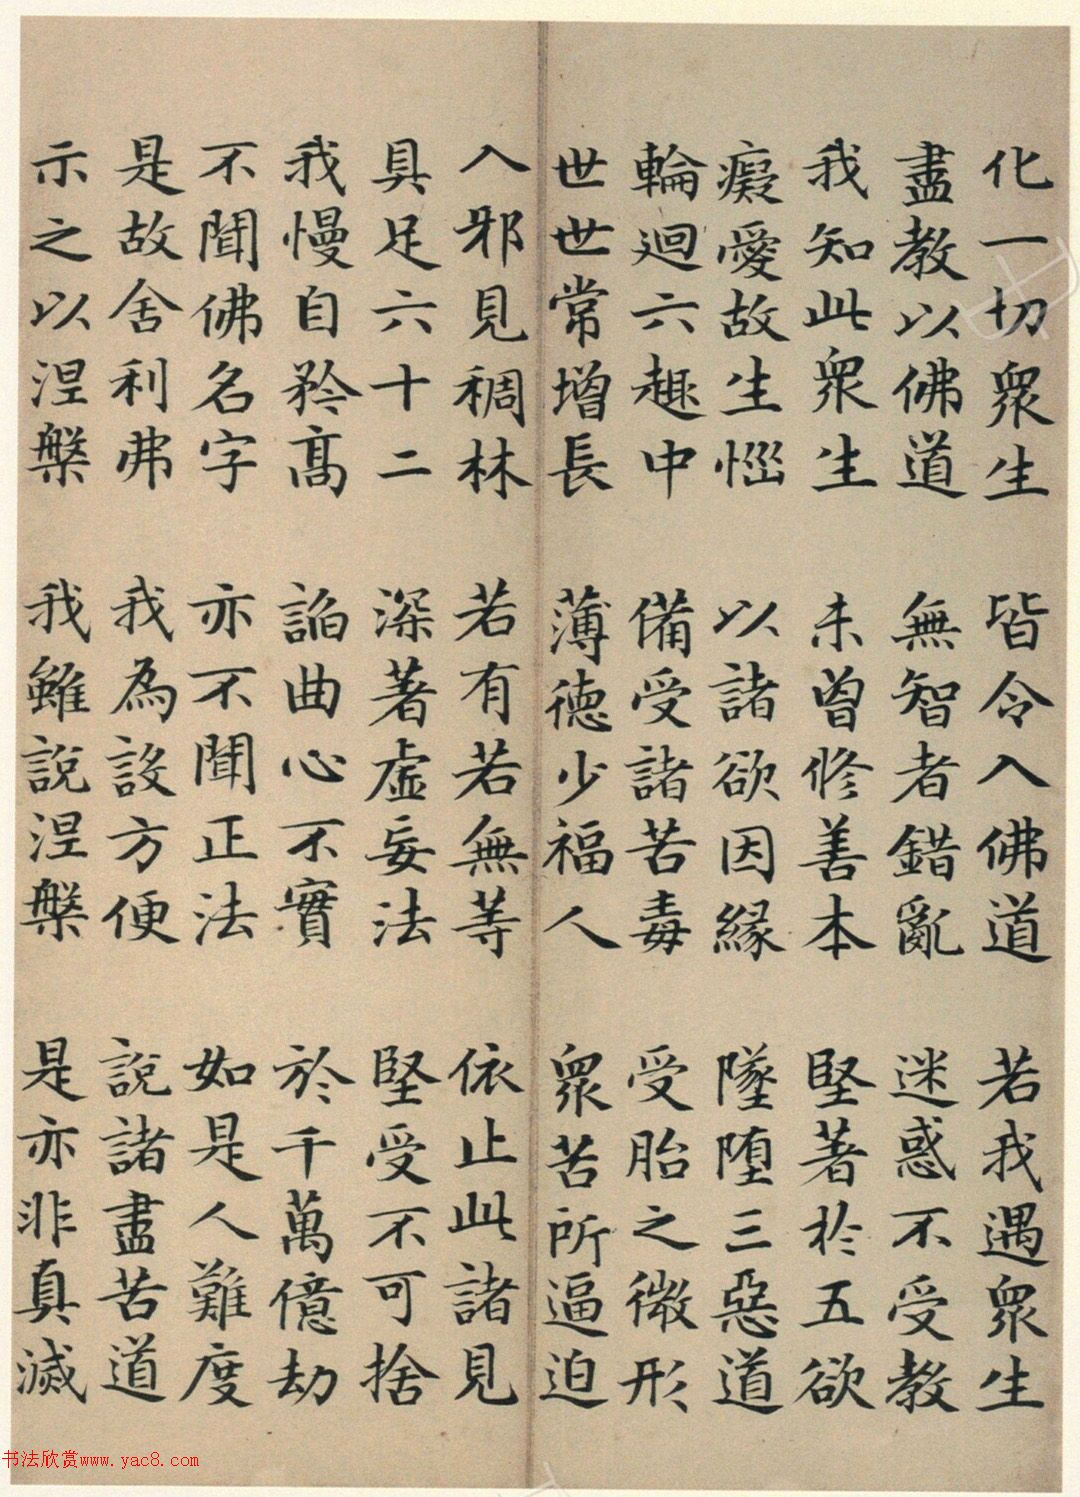 化一切衆生 皆令入佛道 若我遇衆生
盡教以佛道 無智者錯亂 迷惑不受教
我知此衆生 未曾修善本 堅著於五欲
癡愛故生惱 以諸欲因緣 墜墮三惡道
輪迴六趣中 備受諸苦毒 受胎之微形
世世常增長 薄德少福人 衆苦所逼迫
入邪見稠林 若有若無等 依止此諸見
具足六十二 深著虛妄法 堅受不可捨
我慢自矜高 諂曲心不實 於千萬億劫
不聞佛名字 亦不聞正法 如是人難度
是故舍利弗 我為設方便 說諸盡苦道
示之以涅槃 我雖說涅槃 是亦非真滅
书法欣赏www.yac8.com